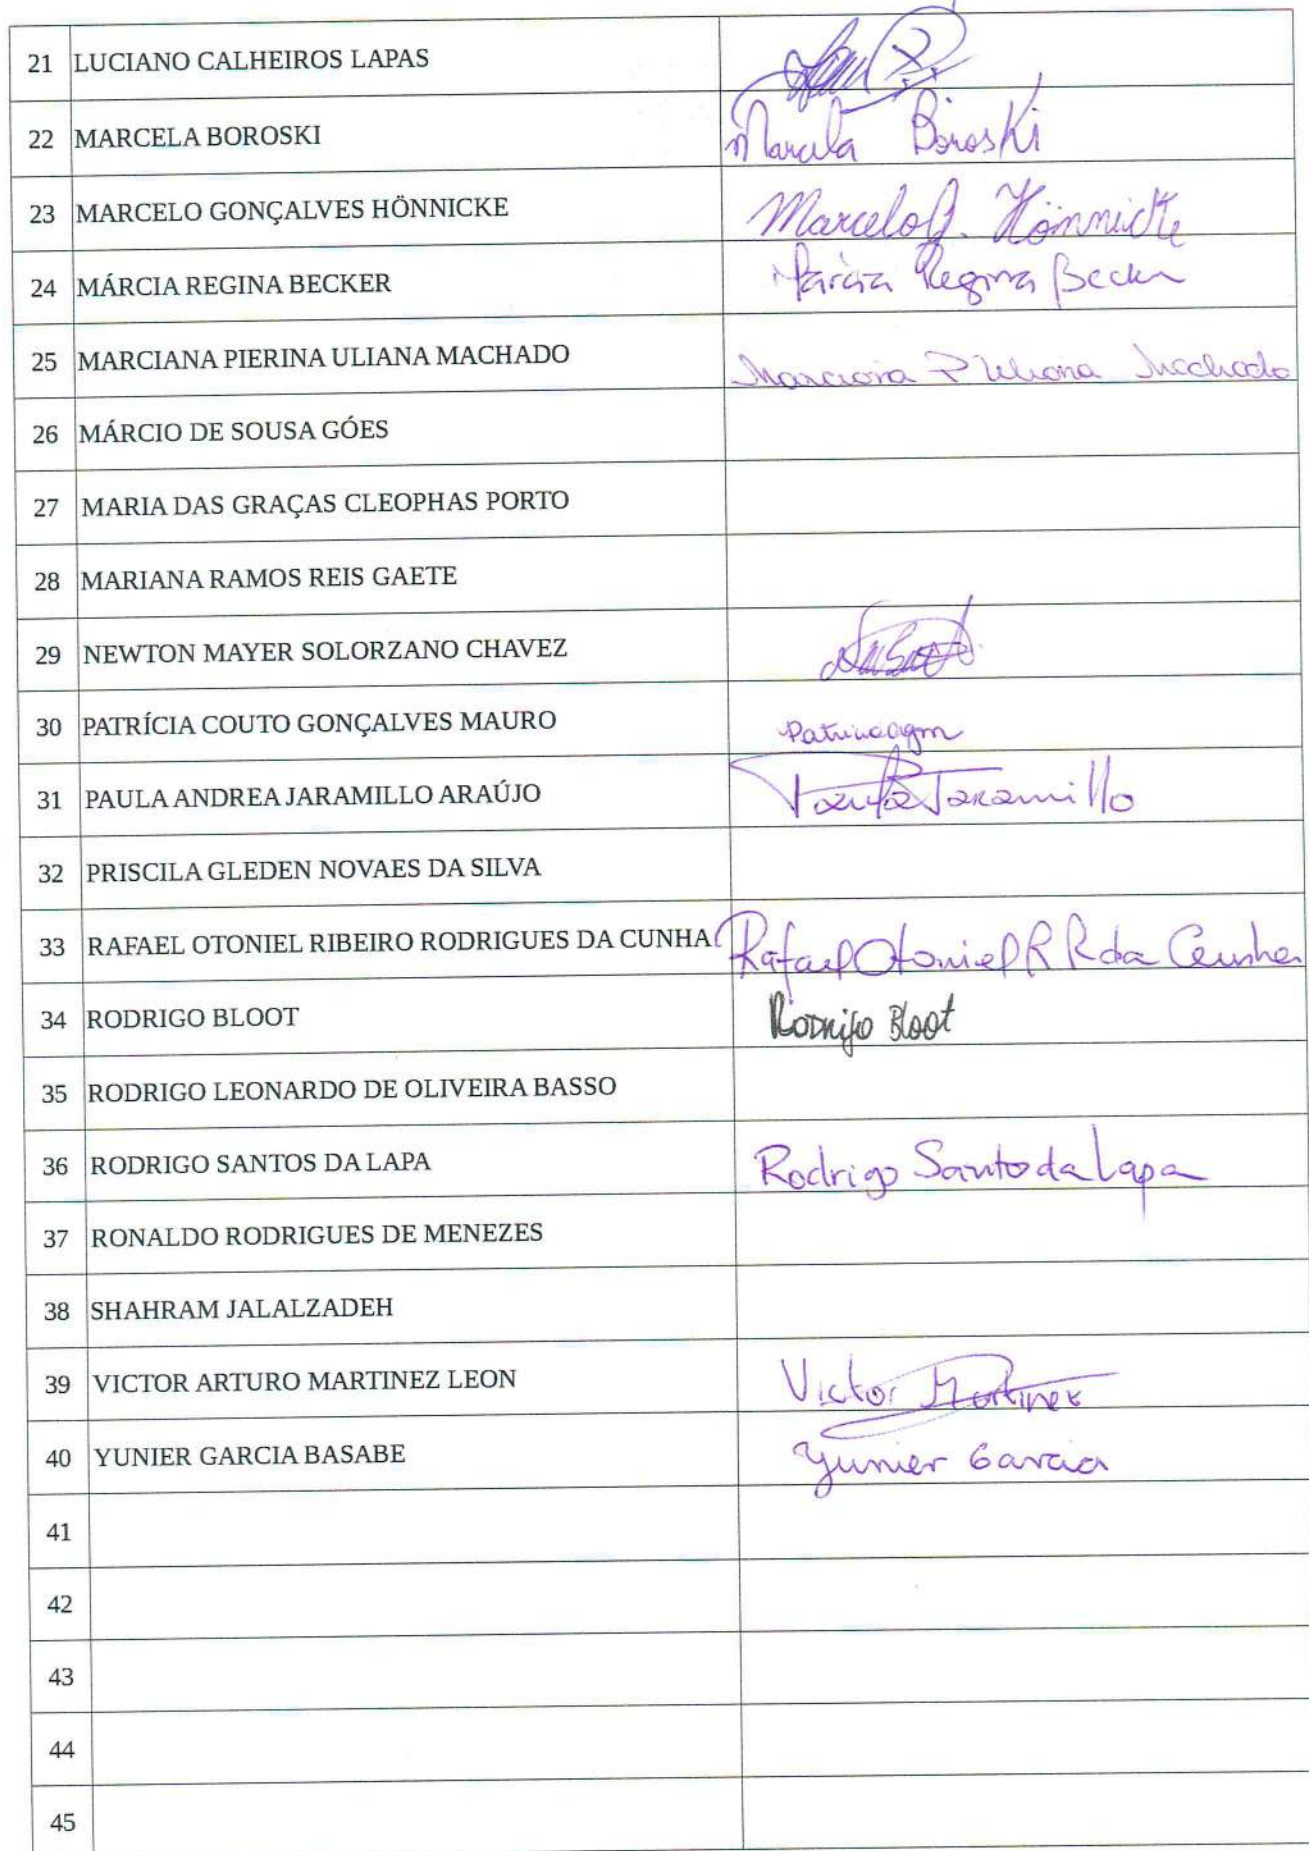 21 LUCIANO CALHEIROS LAPAS
22 MARCELA BOROSKI Marcela Boroski
23 MARCELO GONÇALVES HÖNNICKE Marcelo G. Hönnicke
24 MÁRCIA REGINA BECKER Márcia Regina Becker
25 MARCIANA PIERINA ULIANA MACHADO Marciana P Uliana Machado
26 MÁRCIO DE SOUSA GÓES
27 MARIA DAS GRAÇAS CLEOPHAS PORTO
28 MARIANA RAMOS REIS GAETE
29 NEWTON MAYER SOLORZANO CHAVEZ
30 PATRÍCIA COUTO GONÇALVES MAURO Patriciacgm
31 PAULA ANDREA JARAMILLO ARAÚJO Paula Jaramillo
32 PRISCILA GLEDEN NOVAES DA SILVA
33 RAFAEL OTONIEL RIBEIRO RODRIGUES DA CUNHA Rafael Otoniel R R da Cunha
34 RODRIGO BLOOT Rodrigo Bloot
35 RODRIGO LEONARDO DE OLIVEIRA BASSO
36 RODRIGO SANTOS DA LAPA Rodrigo Santo da Lapa
37 RONALDO RODRIGUES DE MENEZES
38 SHAHRAM JALALZADEH
39 VICTOR ARTURO MARTINEZ LEON Victor Martinez
40 YUNIER GARCIA BASABE Yunier Garcia
41
42
43
44
45